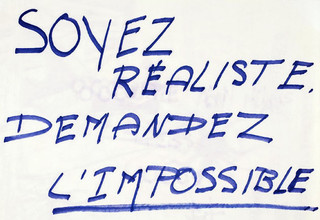 SOYEZ
RÉALISTE.
DEMANDEZ
L'IMPOSSIBLE